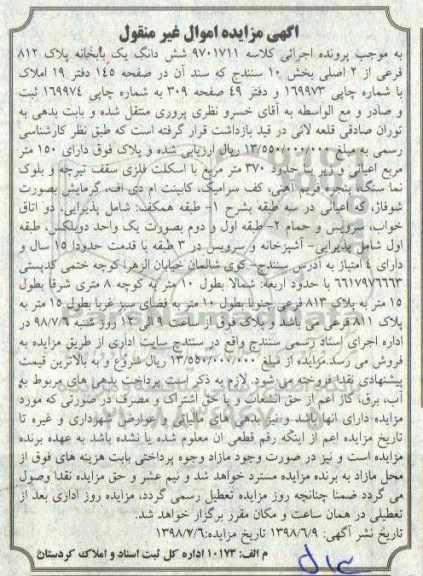 آگهی مزایده اموال غیر منقول
به موجب پرونده اجرائی کلاسه ۹۷۰۱۷۱۱ شش دانگ یک بابخانه پلاک ۸۱۲
فرعی از ۲ اصلی بخش ۱۰ سنندج که سند آن در صفحه ۱۴۵ دفتر ۱۹ املاک
با شماره چاپی ۱۶۹۹۷۳ و دفتر ۴۹ صفحه ۳۰۹ به شماره چاپی ۱۶۹۹۷۴ ثبت
و صادر و مع الواسطه به آقای خسرو نظری پروری منتقل شده و بابت بدهی به
توران صادقی قلعه لانی در قید بازداشت قرار گرفته است که طبق نظر کارشناسی
رسمی به مبلغ ۱۳/۵۵۰/۰۰۰/۰۰۰ ریال ارزیابی شده و پلاک فوق دارای ۱۵۰ متر
مربع اعیانی و زیر بنا حدود ۳۷۰ متر مربع با اسکلت فلزی سقف تیرچه و بلوک
نما سنگ، پنجره فریم آهنی، کف سرامیک، کابینت ام دی اف، گرمایش بصورت
شوفاژ، که اعیانی در سه طبقه بشرح ۱- طبقه همکف: شامل پذیرایی، دو اتاق
خواب، سرویس و حمام ۲- طبقه اول و دوم بصورت یک واحد دوبلکس، طبقه
اول شامل پذیرایی- آشپزخانه و سرویس در ۳ طبقه با قدمت حدودا ۱۵ سال و
دارای ۴ امتیاز به آدرس سنندج- کوی شالمان خیابان الزهرا کوچه ختمی کدپستی
۶۶۱۷۹۷۶۶۶۳ با حدود اربعه: شمالا بطول ۱۰ متر به کوچه ۸ متری شرقا بطول
۱۵ متر به پلاک ۸۱۳ فرعی جنوبا بطول ۱۰ متر به فضای سبز غربا بطول ۱۵ متر به
پلاک ۸۱۱ فرعی می باشد و پلاک فوق از ساعت ۹ الی ۱۲ روز شنبه ۹۸/۷/۶ در
اداره اجرای اسناد رسمی سنندج واقع در سنندج سایت اداری از طریق مزایده به
فروش می رسد.مزایده از مبلغ ۱۳/۵۵۰/۰۰۰/۰۰۰ ریال شروع و به بالاترین قیمت
پیشنهادی نقدا فروخته می شود. لازم به ذکر است پرداخت بدهی های مربوط به
آب، برق، گاز اعم از حق انشعاب و یا حق اشتراک و مصرف در صورتی که مورد
مزایده دارای آنها باشد و نیز بدهی های مالیاتی و عوارض شهرداری و غیره تا
تاریخ مزایده اعم از اینکه رقم قطعی آن معلوم شده یا نشده باشد به عهده برنده
مزایده است و نیز در صورت وجود مازاد وجوه پرداختی بابت هزینه های فوق از
محل مازاد به برنده مزایده مسترد خواهد شد و نیم عشر و حق مزایده نقدا وصول
می گردد ضمنا چنانچه روز مزایده تعطیل رسمی گردد، مزایده روز اداری بعد از
تعطیلی در همان ساعت و مکان مقرر برگزار خواهد شد.
تاریخ نشر آگهی: ۱۳۹۸/۶/۹ تاریخ مزایده:۱۳۹۸/۷/۶
م الف: ۱۰۱۷۳ اداره کل ثبت اسناد و املاک کردستان